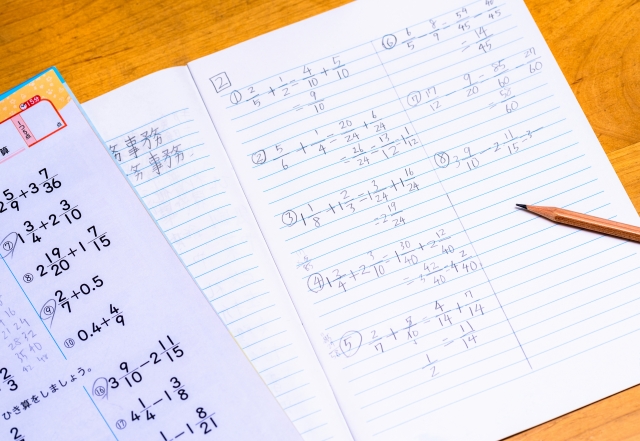 15分
算
2 5/9 + 3 7/36
⑦ 1 3/4 + 2 3/10
⑧ 2 19/20 + 1 7/15
⑨ 2/7 + 0.5
⑩ 0.4 + 4/9
ひき算をしましょう。
⑯ 3 9/10 - 2 11/15
⑰ 4 1/4 - 1 3/8
- 1 8/21
務事務
務事務
2
① 2/5 + 1/2 = 4/10 + 5/10
= 9/10
② 5/6 + 1/4 = 20/24 + 6/24
= 26/24 = 13/12 = 1 1/12
③ 1 1/8 + 1 2/3 = 1 3/24 + 1 16/24
= 2 19/24
④ 1 3/4 + 2 3/10 = 1 30/40 + 2 12/40
= 3 42/40 = 4 2/40
⑤ 2/7 + 5/10 = 4/14 + 7/14
= 11/14
1/2
⑥ 6/5 - 8/9 = 54/45 - 40/45
= 14/45
⑦ 17/12 - 9/20 = 85/60 - 27/60
= 58/60
⑧ 3 9/10 - 2 11/15 = 3